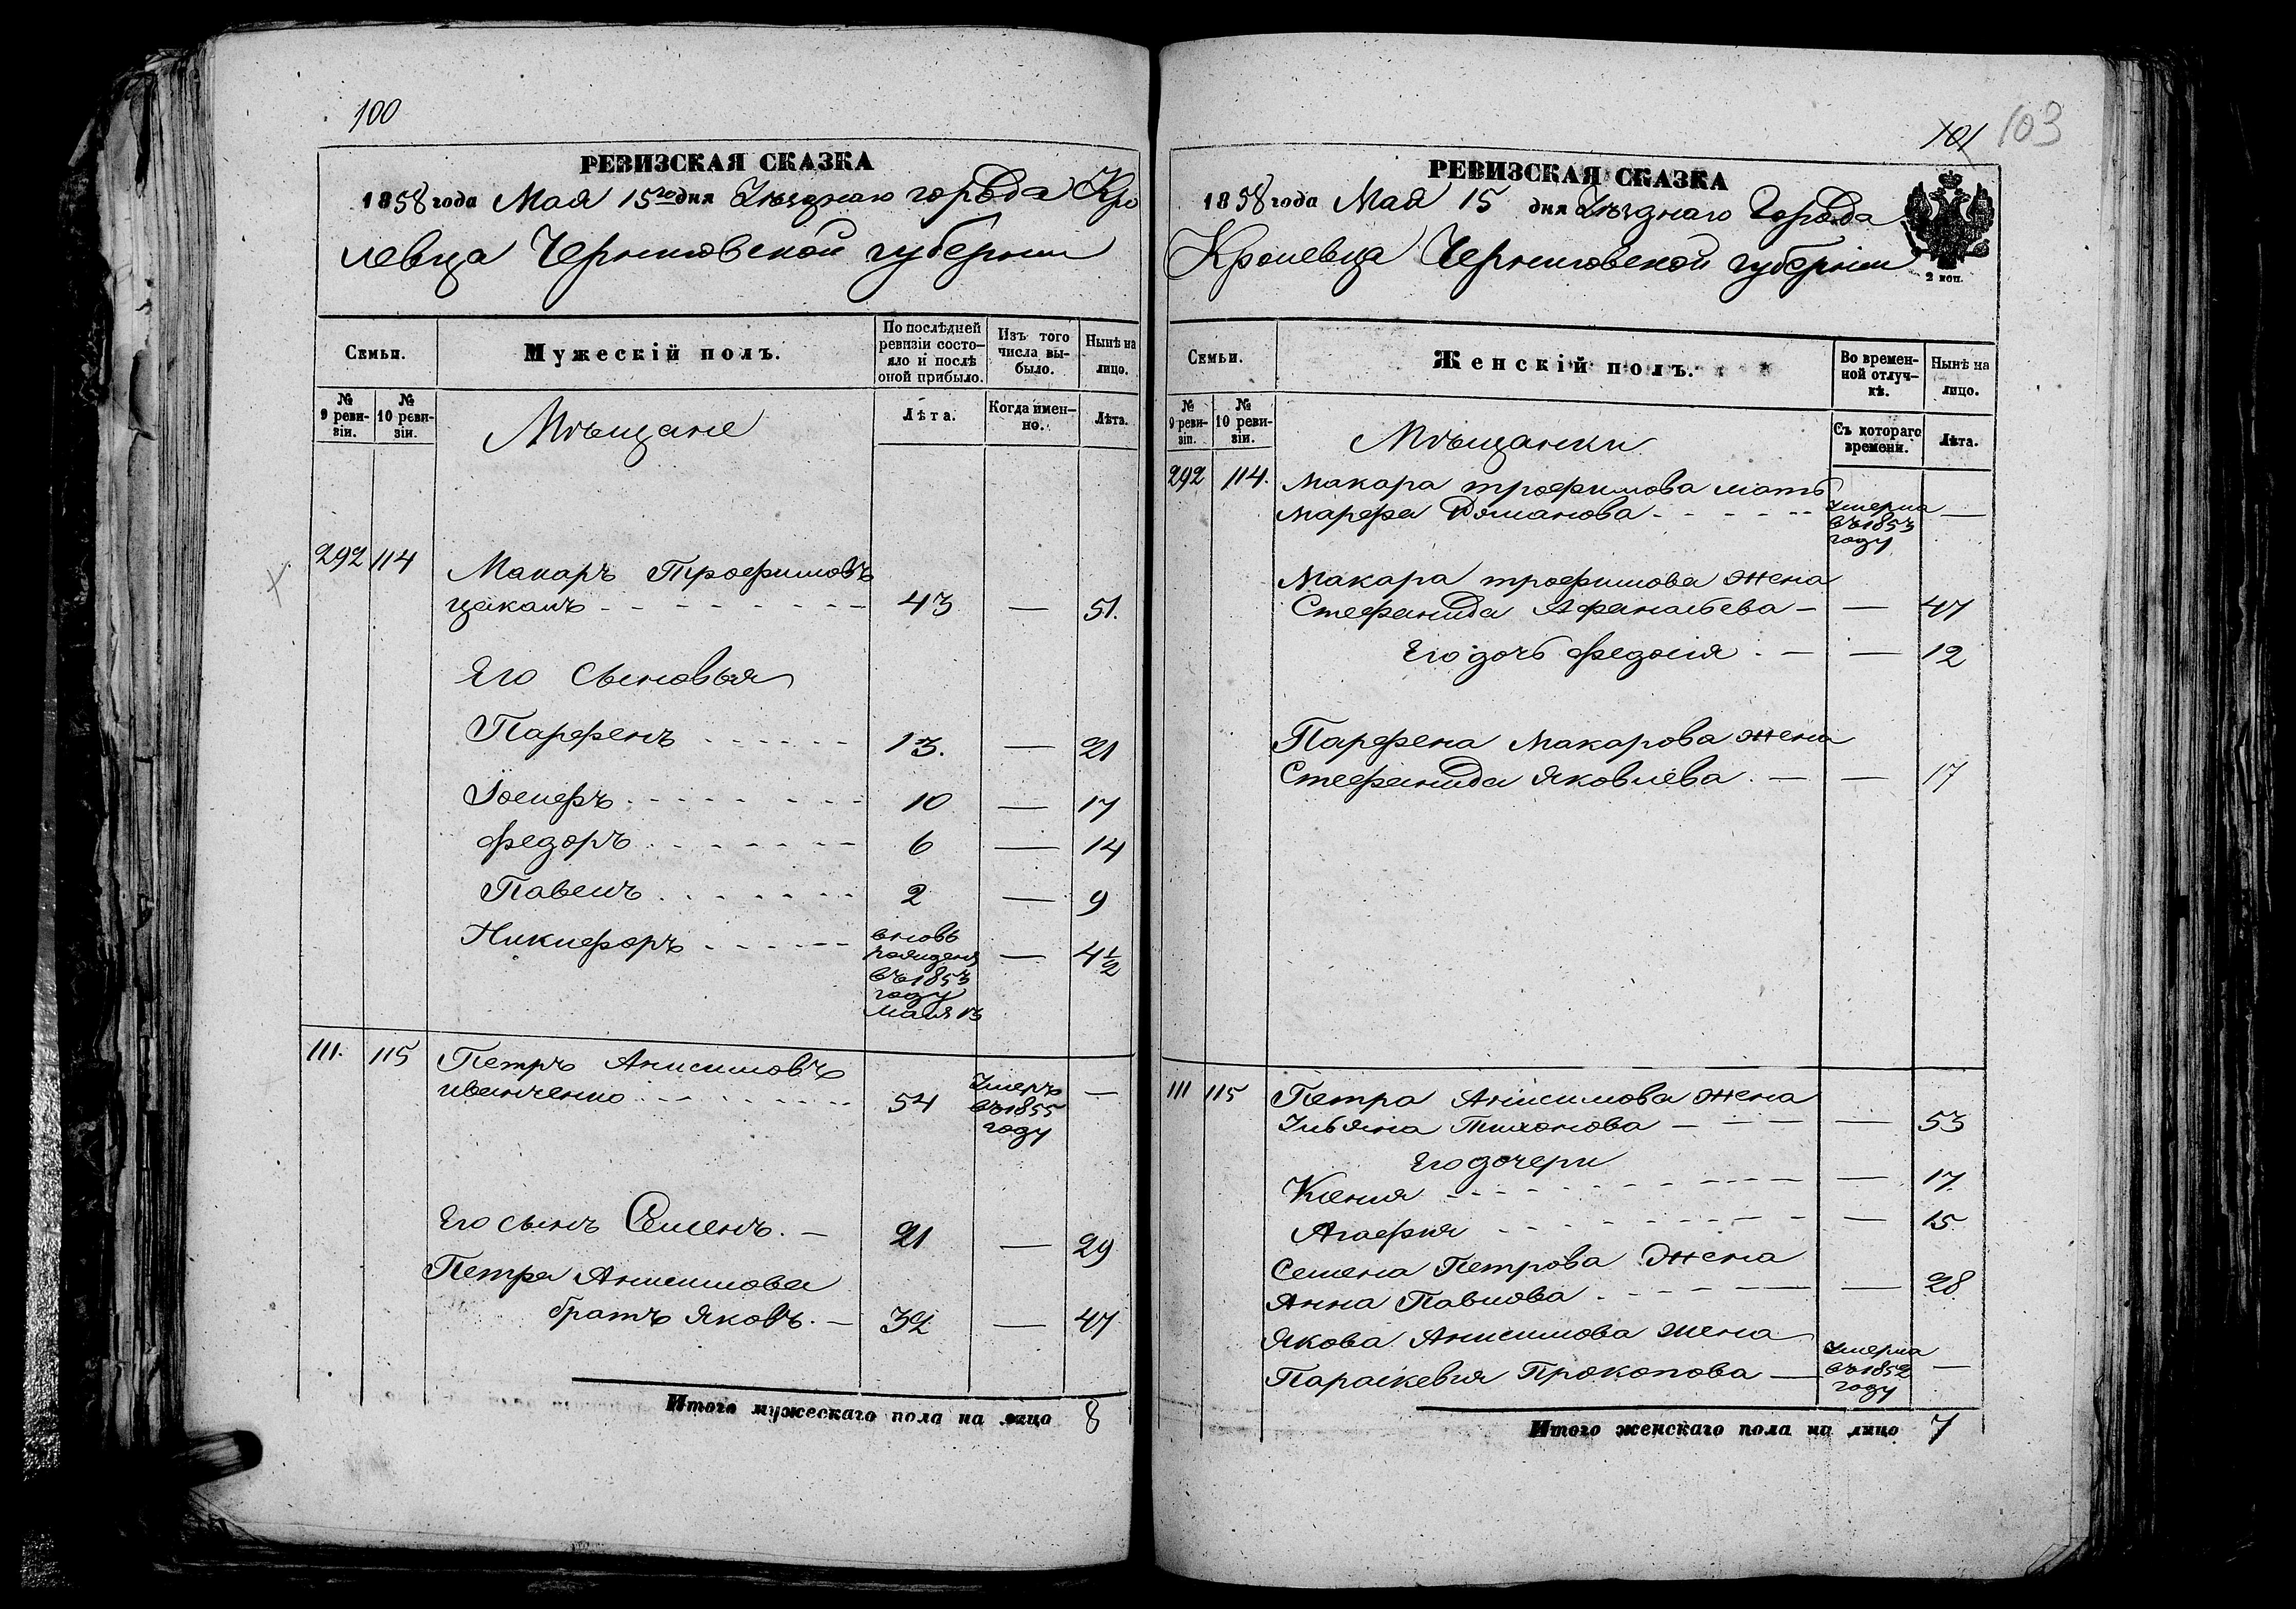 100
РЕВИЗСКАЯ СКАЗКА
1858 года Мая 15го дня Уѣзднаго города Кро
левца Черниговской губерніи
Семьи.
Мужескій полъ.
По послѣдней ревизіи состояло и послѣ оной прибыло.
Изъ того числа выбыло.
Нынѣ на лицо.
№ 9 ревизіи.
№ 10 ревизіи.
Мѣщане
Лѣта.
Когда именно.
Лѣта.
292 114
Макаръ Трофимовъ
Цекалъ 43 — 51.
Его сыновья
Парфенъ 13. — 21
Іосифъ 10 — 17
Федоръ 6 — 14
Павелъ 2 — 9
Никифоръ вновь рожденъ въ 1853 году Маія 13 — 4½
111. 115 Петръ Анисимовъ
Иванченко 54 Умеръ въ 1855 году —
Его сынъ Семенъ. — 21 — 29
Петра Анисимова
братъ Яковъ. — 39 — 47
Итого мужескаго пола на лицо 8
101 103
РЕВИЗСКАЯ СКАЗКА
1858 года Мая 15 дня Уѣзднаго Города
Кролевца Черниговской губерніи
2 коп.
Семьи.
Женскій полъ.
Во временной отлучкѣ.
Нынѣ на лицо.
№ 9 ревизіи.
№ 10 ревизіи.
Мѣщанки
Съ котораго времени.
Лѣта.
292 114. Макара Трофимова мать
Марфа Романова Умерла въ 1853 году —
Макара Трофимова жена
Стефанида Афанасьева — — 47
Его дочь Федосія — — 12
Парфена Макарова жена
Стефанида Яковлева — — 17
111 115 Петра Анисимова жена
Ульяна Тихонова — — 53
Его дочери
Ксенія — 17.
Агафія — 15
Семена Петрова жена
Анна Павлова — — 28
Якова Анисимова жена
Параскевія Прокопова — Умерла въ 1852 году —
Итого женскаго пола на лицо 7